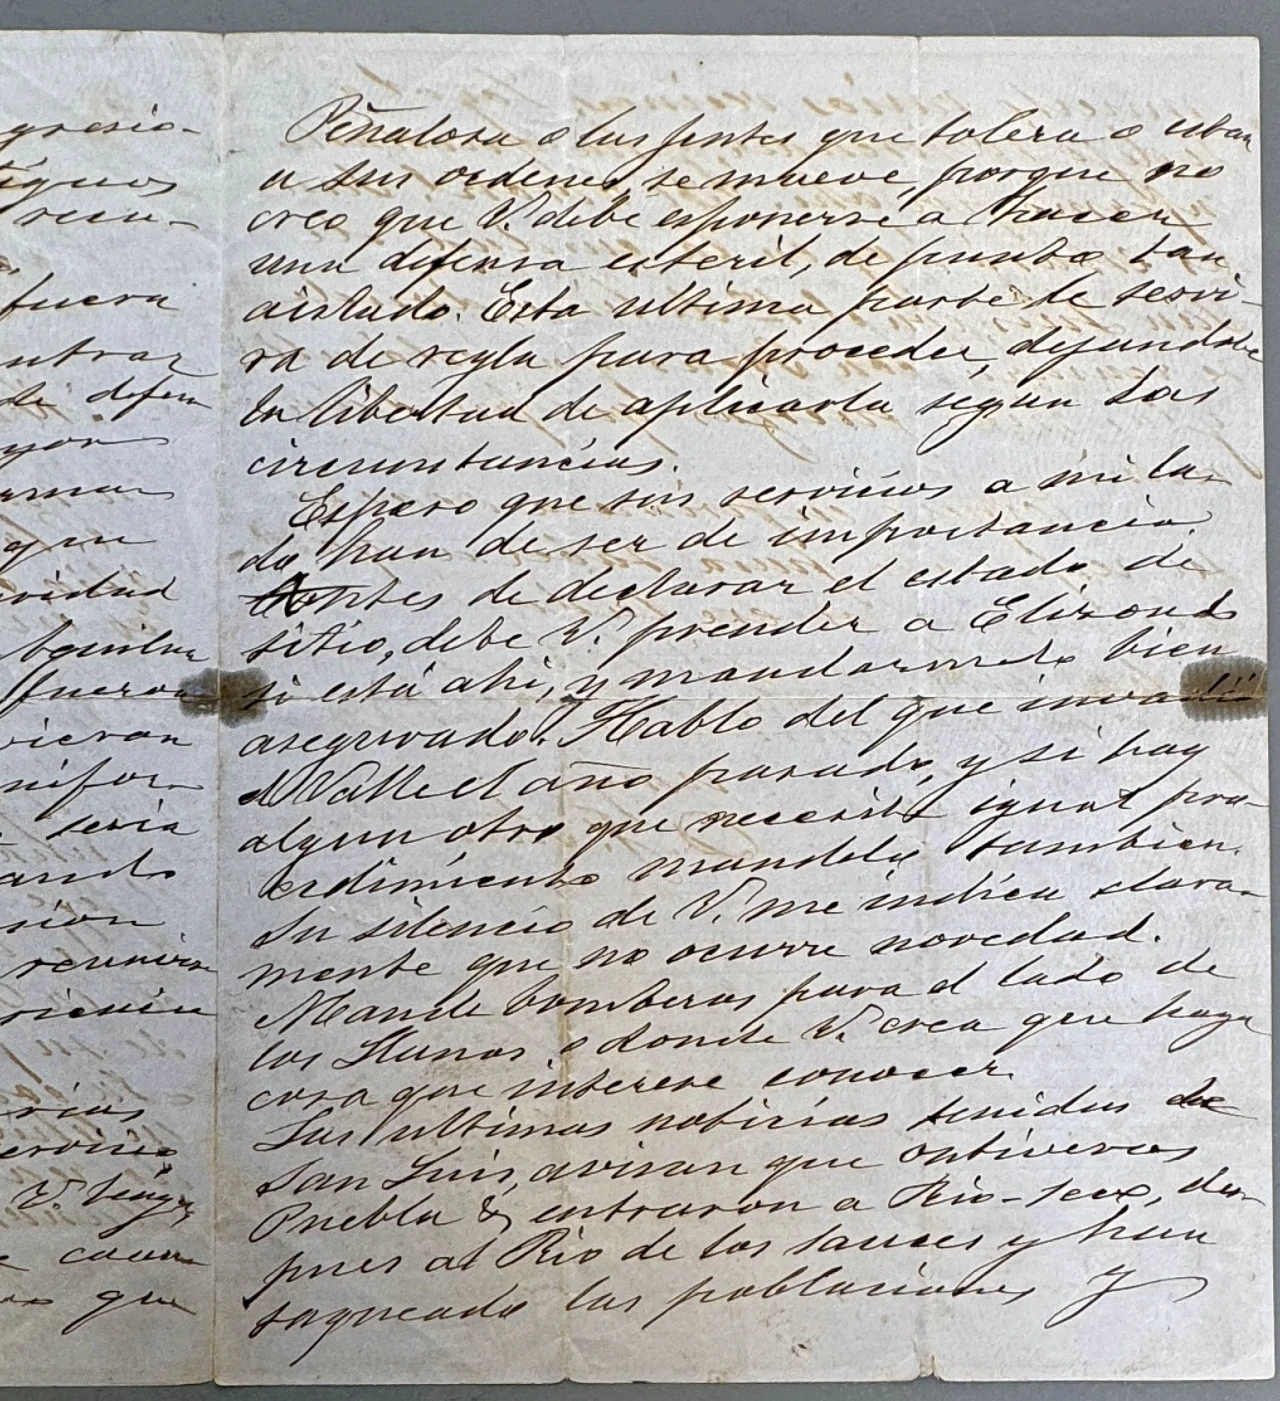 gresio-
tiguos
recu-
fuera
ntrar
de defen
yor
armas
que
vidad
fueron
vieron
nifor-
seria
ando
sion
reunirse
rias
servicio,
V. tenga
que
Peñalosa o las jentes que tolera o estan
a sus ordenes, se mueve, porque no
creo que V. debe esponerse a hacer
una defensa esteril, de punto tan
aislado. Esta ultima parte le servi-
ra de regla para proceder, dejandole
la libertad de aplicarla segun las
circunstancias.
Espero que sus servicios a mi la-
do han de ser de importancia.
Antes de declarar el estado de
sitio, debe V. prender a Elizondo
si está ahi, y mandarmelo bien
asegurado. Hablo del que invadió
el Valle el año pasado, y si hay
algun otro que necesite igual pro-
cedimiento mandelo tambien.
Su silencio de V. me indica clara-
mente que no ocurre novedad.
Mande bomberos para el lado de
los Llanos o donde V. crea que haya
cosa que interese conocer.
Las ultimas noticias tenidas de
San Luis, avisan que Ontiveros
Puebla &, entraron a Rio-seco, des-
pues al Rio de los Sauces y han
saqueado las poblaciones y